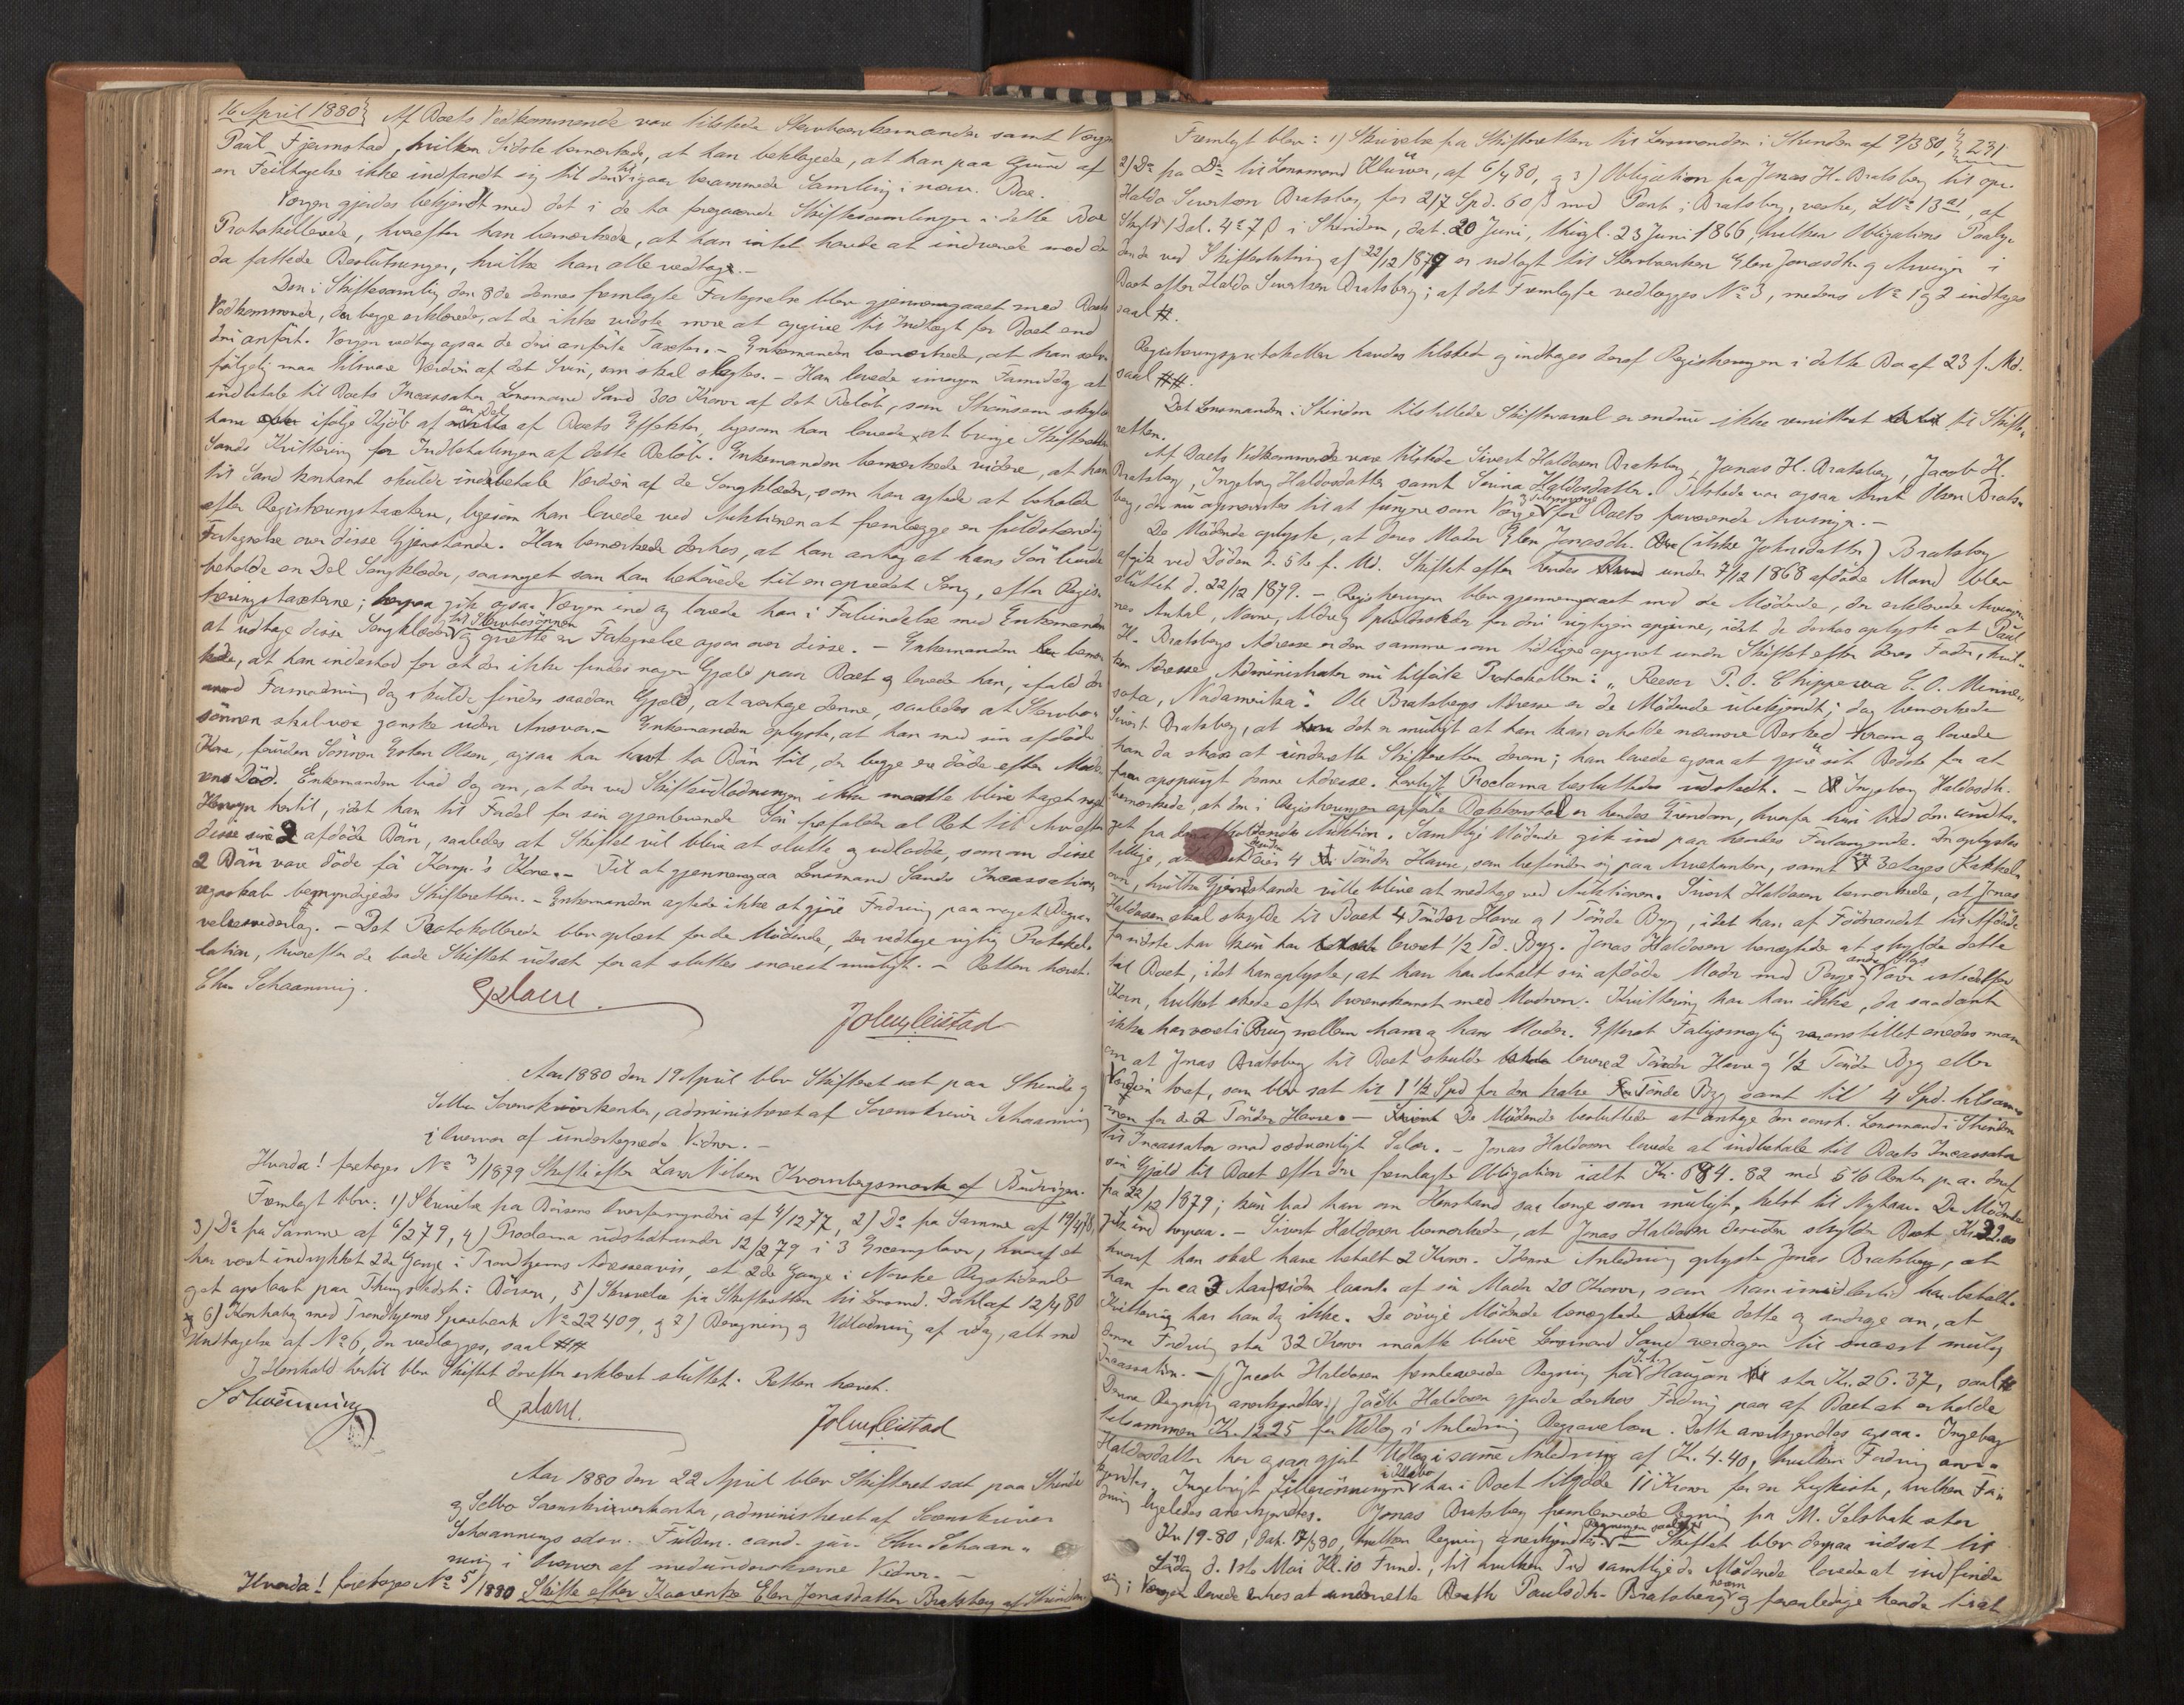 16 April 1880} Af Boets Vedkommende var tilstede Stervboenkemanden samt Vergen
Paul Fjermstad, hvilken Sidste bemærkede, at han beklagede, at han paa Grund af
en Feiltagelse ikke indfandt sig til den til igaar berammede Samling i nærv. Bo.
Vergen gjordes bekjendt med det i de to foregaaende Skiftesamlinger i dette Bo
Protokollerede, hvorefter han bemærkede, at han intet havde at indvende mod de
da fattede Beslutninger, hvilke han alle vedtog.-
Den i Skiftesamling den 8de dennes fremlagte Fortegnelse blev gjennemgaaet med Boets
Vedkommende, der begge erklærede, at de ikke vidste mere at opgive til Indtægt for Boet end
deri anført. Vergen vedtog ogsaa de deri anførte Taxter.- Enkemanden bemærkede, at han selv
følgelig maa tilsvare Værdien af det Svin, som skal slagtes.- Han lovede imorgen Formiddag at
indbetale til Boets Incassator Lensmand Sand 300 Kroner af det Beløb, som
ham ifølge Kjøb af en Del af Boets Effekter, ligesom han lovede at bringe Skifteretten
Sands Kvittering for Indbetalingen af dette Beløb. Enkemanden bemærkede videre, at han
til Sand kontant skulde indbetale Værdien af de Sengklæder, som han agtede at beholde
efter Registreringstaxterne, ligesom han lovede ved Auktionen at fremlægge en fuldstændig
Fortegnelse over disse Gjenstande. Han bemærkede derhos, at han antog at hans Søn burde
beholde en Del Sengklæder, saameget som han behøvede til en opredet Seng, efter Regis-
treringstaxterne; herpaa gik ogsaa Vergen ind og lovede han i Forbindelse med Enkemanden
at udtage disse Sengklæder til Stervbosønnen og oprette en Fortegnelse ogsaa over disse.- Enkemanden bemær-
kede, at han indestod for at der ikke findes nogen Gjæld paa Boet og lovede han, ifald der
mod Formodning dog skulde findes saadan Gjæld, at overtage denne, saaledes at Stervbo-
sønnen skal være ganske uden Ansvar.- Enkemanden oplyste, at han med sin afdøde
Kone, foruden Sønnen Esten Olsen, ogsaa har havt to Børn til, der begge ere døde efter Mode-
rens Død. Enkemanden bad dog om, at der ved Skifteudlodningen ikke maatte blive taget noget
Hensyn hertil, idet han til Fordel for sin gjenlevende Søn frafalder al Ret til Arv efter
disse sine 2 afdøde Børn, saaledes at Skiftet vil blive at slutte og udlodde, som om disse
2 Børn vare døde før Komp.'s Kone.- Til at gjennemgaa Lensmand Sands Incassations-
regnskab bemyndigedes Skifteretten.- Enkemanden agtede ikke at gjøre Fordring paa noget Begra-
velsesvederlag.- Det Protokollerede blev oplæst for de Mødende, der vedtoge rigtig Protokol-
lation, hvorefter de bade Skiftet udsat for at sluttes snarest muligt.- Retten hævet.
Chr. Schaanning.
John Leistad
Aar 1880 den 19 April blev Skifteret sat paa Strinde og
Selbu Sorenskriverkontor, administreret af Sorenskriver Schaanning
i Overvær af undertegnede Vidner.-
Hvorda! foretoges No 3/1879 Skifte efter Lars Nielsen Kvernbergsmark af Budvigen.
Fremlagt blev: 1) Skrivelse fra Børsens Overformynderi af 4/12 77, 2) Do fra Samme af 19/4 78,
3) Do fra Samme af 6/2 79, 4) Proclama udstedt under 12/2 79 i 3 Exemplarer, hvoraf et
har været indrykket 2de Gange i Trondhjems Adresseavis, et 2de Gange i Norske Rigstidende
og et oplæst paa Thingstedet i Børsen, 5) Skrivelse fra Skifteretten til Lensmd. Dahl af 12/4 80
6) Kontrabog med Trondhjems Sparebank No 22409, og 7) Beregning og Udlodning af idag, alt med
Undtagelse af No 6, der vedlægges, saal. ##
I Henhold hertil blev Skiftet derefter erklæret sluttet. Retten hævet.
Schaanning
John Leistad
Aar 1880 den 22 April blev Skifteret sat paa Strinde
og Selbu Sorenskriverkontor, administreret af Sorenskriver
Schaannings edsv. Fuldm. cand. jur. Chr. Schaan-
ning i Overvær af medunderskrevne Vidner.-
Hvorda! foretoges No 5/1880 Skifte efter Kaarenke Elen Jonasdatter Bratsberg af Strinden.
Fremlagt blev: 1) Skrivelse fra Skifteretten til Lensmanden i Strinden af 9/3 80, } 231
2) Do fra Do til Lensmand Klüwer, af 6/4 80, og 3) Obligation fra Jonas H. Bratsberg til
Haldo Sivertsen Bratsberg for 217 Spd. 60 ß med Pant i Bratsberg, vestre, LNo 13 a1, af
Skyld 1 Dal. 4 7 ß i Strinden, dat. 20 Juni, thingl. 23 Juni 1866, hvilken Obligations Paaly-
dende ved Skifteslutning af 22/12 1879 er udlagt til Stervboenken Elen Jonasdtr. og Arvinger i
Boet efter Haldo Sivertsen Bratsberg; af det Fremlagte vedlægges No 3, medens No 1 og 2 indtages
saal. #.
Registreringsprotokollen havdes tilstede og indtages deraf Registreringen i dette Bo af 23 f. Md.
saal. ##.
Det Lensmanden i Strinden tilstillede Skiftevarsel er endnu ikke remitteret til Skifte-
retten.
Af Boets Vedkommende vare tilstede Sivert Haldosen Bratsberg, Jonas H. Bratsberg, Jacob H.
Bratsberg, Ingeborg Haldosdatter samt Haldosdatter. Tilstede var ogsaa Arnt Olsen Brats-
berg, der nu opnævntes til at fungere som Verge for Boets fraværende Arvinger.-
De Mødende oplyste, at deres Moder Elen Jonasdtr. (ikke Johnsdatter) Bratsberg
afgik ved Døden d. 5te f. Md. Skiftet efter hendes under 7/12 1868 afdøde Mand blev
sluttet d. 22/12 1879.- Registreringen blev gjennemgaaet med de Mødende, der erklærede Arvinger-
nes Antal, Navne, Alder og Opholdssteder for deri rigtigen opgivne, idet de derhos oplyste at Paul
H. Bratsbergs Adresse er den samme som tidligere opgivet under Skiftet efter deres Fader, hvil-
ken Adresse Administrator nu tilførte Protokollen: „Reeser P.O. Chippewa C.O. Minne-
sota, Nordamerika". Ole Bratsbergs Adresse er de Mødende ubekjendt; dog bemærkede
Sivert Bratsberg, at det er muligt at han kan erholde nærmere Besked herom og lovede
han da strax at underrette Skifteretten derom; han lovede ogsaa at gjøre sit Bedste for at
faa opspurgt denne Adresse. Lovligt Proclama besluttedes udstedt.- Ingeborg Haldosdtr.
bemærkede, at den i Registreringen opførte er hendes Eiendom, hvorfor hun bad den undta-
get fra den afholdendes Auktion. Samtlige Mødende gik ind paa hendes Forlangende. De oplyste
tillige, at Boet eier 4 Tønder Havre, som befinder sig paa Arvetomten, samt 3 etages Kakkel-
ovn, hvilke Gjenstande ville blive at medtage ved Auktionen. Sivert Haldosen bemærkede, at Jonas
Haldosen skal skylde til Boet 4 Tønder Havre og 1 Tønde Byg, idet han af Føderaadet til Afdøde
for sidste Aar kun har leveret 1/2 Td. Byg. Jonas Haldosen benægtede at skylde dette
til Boet, idet han oplyste, at han har betalt sin afdøde Moder med Penge og andre Slags Varer istedetfor
Korn, hvilket skede efter Overenskomst med Moderen. Kvittering har han ikke, da saadant
ikke har været i Brug mellem ham og hans Moder. Efterat Forligsmægling var anstillet enedes man
om at Jonas Bratsberg til Boet skulde levere 2 Tønder Havre og 1/2 Tønde Byg eller
Værdien heraf, som blev sat til 1 1/2 Spd for den halve Tønde Byg samt til 4 Spd. tilsam-
men for de 2 Tønder Havre.- De Mødende besluttede at antage den const. Lensmand i Strinden
til Incassator mod sedvanligt Salær.- Jonas Haldosen lovede at indbetale til Boets Incassator
sin Gjæld til Boet efter den fremlagte Obligation ialt Kr. 684.82 med 5% Rente pr. a. deraf
fra 22/12 1879; kun bad han om Henstand saa længe som muligt, helst til Nytaar. De Mødende
gik ind herpaa.- Sivert Haldosen bemærkede, at Jonas Haldosen desuden skylder Boet Kr. 32.00
hvoraf han skal have betalt 2 Kroner. I denne Anledning oplyste Jonas Bratsberg, at
han for ca 3 Aar siden laante af sin Moder 20 Kroner, som han imidlertid har betalt.
Kvittering har han dog ikke. De øvrige Mødende benægtede dette og androge om, at
denne Fordring stor 32 Kroner maatte blive Lensmand Sand overdragen til snarest mulig
Incassation.- Jacob Haldosen fremleverede Regning fra Haugan stor Kr. 26.37, saal. #
Denne Regning anerkjendtes. Jacob Haldosen gjorde derhos Fordring paa af Boet at erholde
tilsammen Kr. 12.25 for Udlæg i Anledning Begravelsen. Dette anerkjendtes ogsaa. Ingeborg
Haldosdatter har ogsaa gjort Udlæg i samme Anledning af Kr. 4.40, hvilken Fordring aner-
kjendtes. Ingebrigt i Klæbo har i Boet tilgode 11 Kroner for en Ligkiste, hvilken For-
dring ligeledes anerkjendtes. Jonas Bratsberg fremleverede Regning fra M. Selsbak stor
Kr. 19-80, dat. 17/3 80, hvilken Regning anerkjendtes.- Skiftet blev derpaa udsat til
Lørdag d. 1ste Mai Kl. 10 Formd., til hvilken Tid samtlige de Mødende lovede at indfinde
sig; Vergen lovede derhos at underrette Paulsdtr. Bratsberg herom og foranledige hende til at